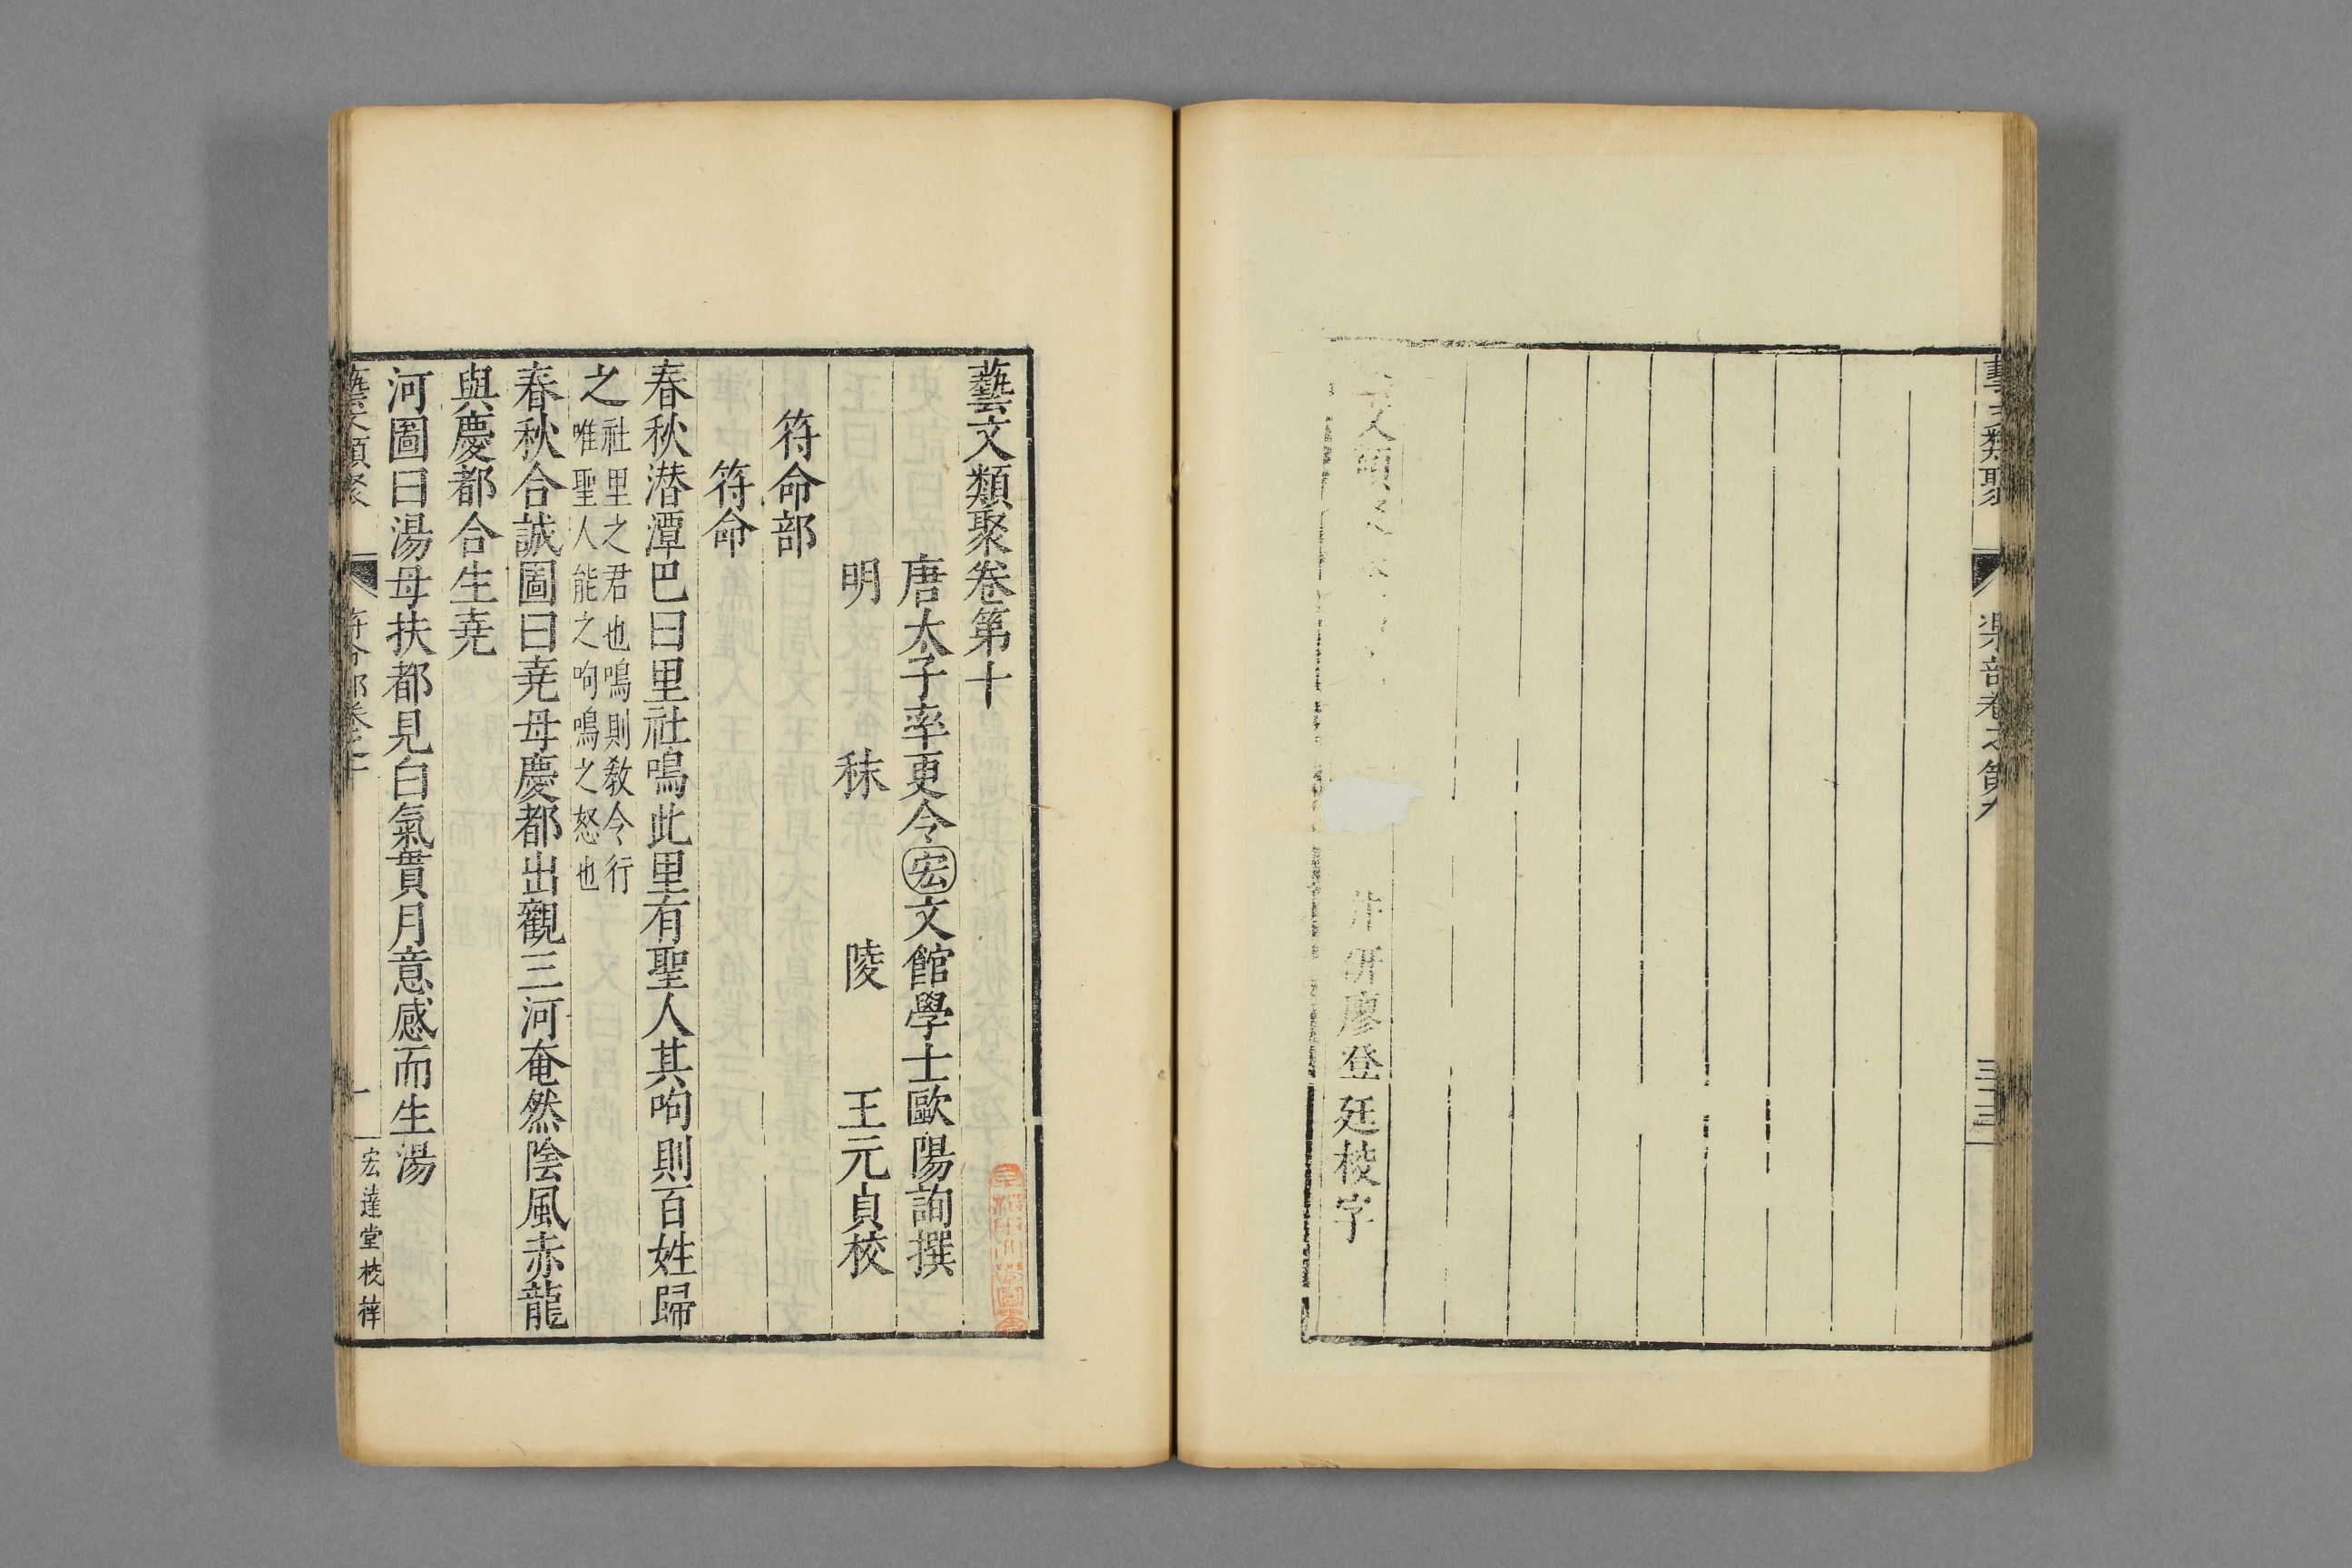 藝文類聚
井研廖登廷校字
藝文類聚卷第十
唐太子率更令宏文館學士歐陽詢撰
明秣陵王元貞校
符命部
符命
春秋潛潭巴曰里社鳴此里有聖人其呴則百姓歸
之社里之君也鳴則教令行
唯聖人能之呴鳴之怒也
春秋合誠圖曰堯母慶都出觀三河奄然陰風赤龍
與慶都合生堯
河圖曰湯母扶都見白氣貫月意感而生湯
藝文類聚
符命部卷之十
一
宏達堂校梓